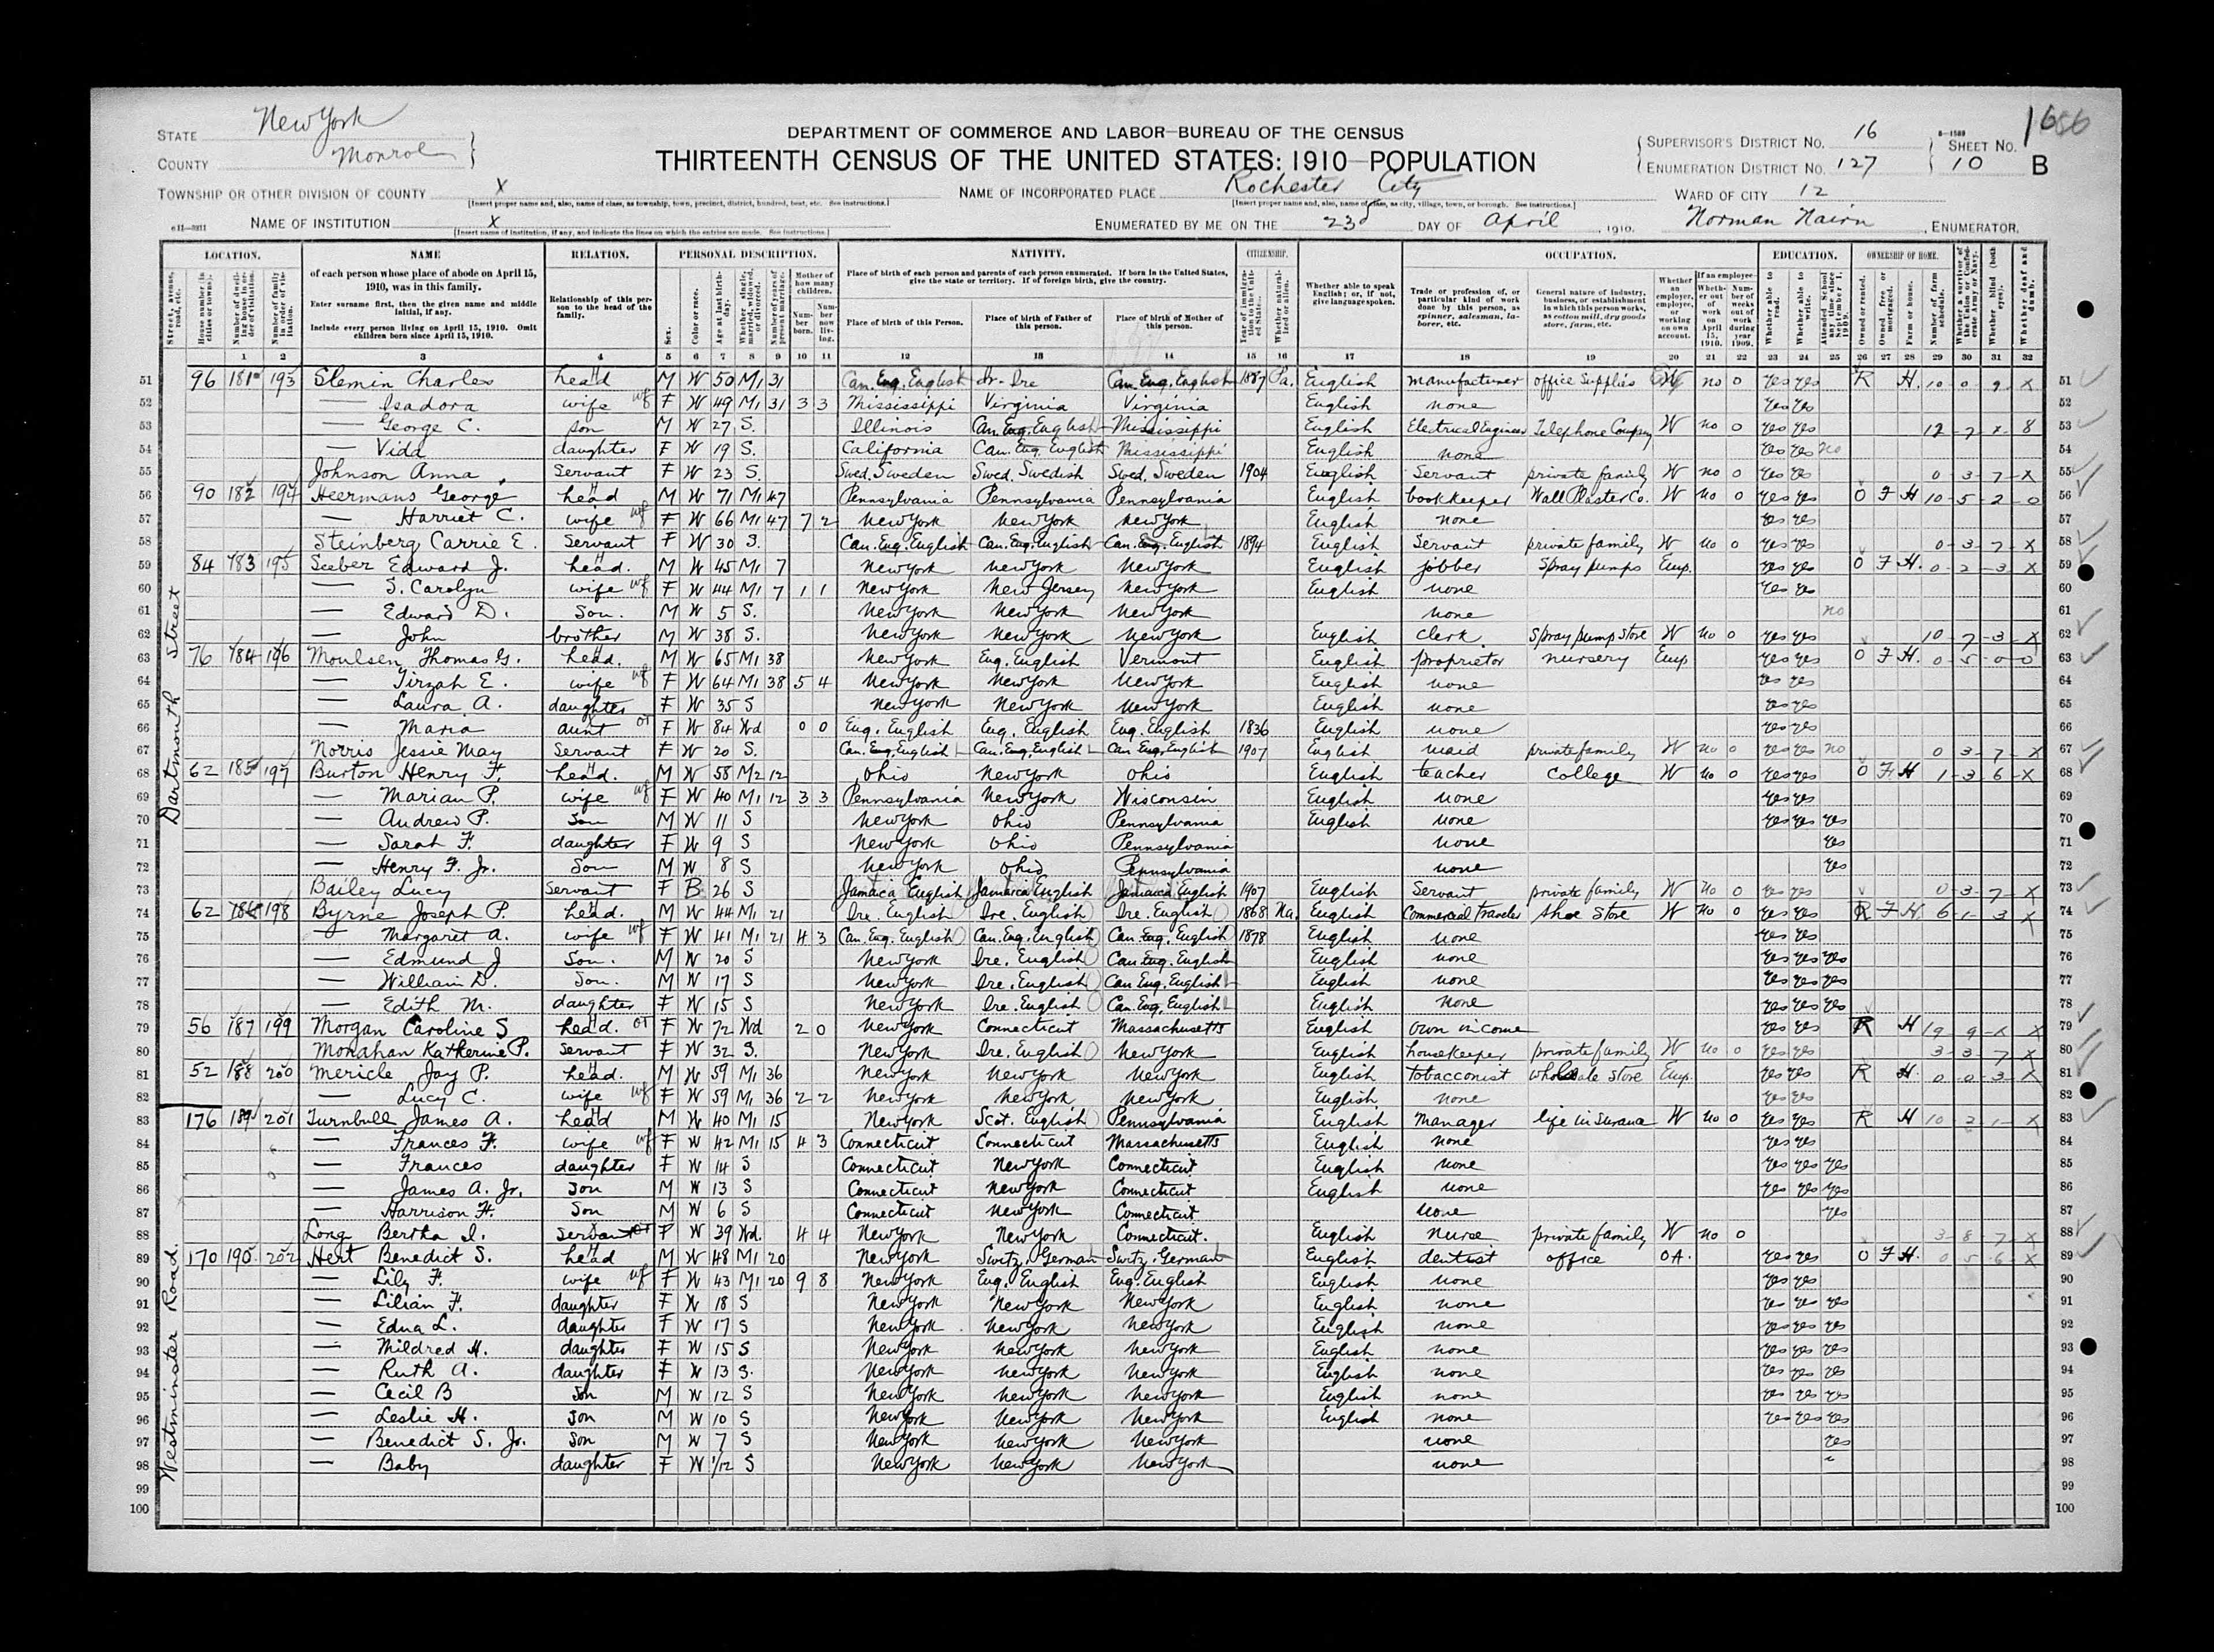 STATE New York
COUNTY Monroe
DEPARTMENT OF COMMERCE AND LABOR—BUREAU OF THE CENSUS
THIRTEENTH CENSUS OF THE UNITED STATES: 1910—POPULATION
SUPERVISOR'S DISTRICT NO. 16
ENUMERATION DISTRICT NO. 127
8—1589
SHEET NO. 10 B
TOWNSHIP OR OTHER DIVISION OF COUNTY X
[Insert proper name and, also, name of class, as township, town, precinct, district, hundred, beat, etc. See instructions.]
NAME OF INCORPORATED PLACE Rochester City
[Insert proper name and, also, name of class, as city, village, town, or borough. See instructions.]
WARD OF CITY 12
NAME OF INSTITUTION X
[Insert name of institution, if any, and indicate the lines on which the entries are made. See instructions.]
ENUMERATED BY ME ON THE 23d DAY OF April, 1910.
Norman Nairn, ENUMERATOR.
LOCATION. NAME RELATION. PERSONAL DESCRIPTION. NATIVITY. CITIZENSHIP. OCCUPATION. EDUCATION. OWNERSHIP OF HOME.
of each person whose place of abode on April 15, 1910, was in this family.
Enter surname first, then the given name and middle initial, if any.
Include every person living on April 15, 1910. Omit children born since April 15, 1910.
Relationship of this person to the head of the family.
Place of birth of each person and parents of each person enumerated. If born in the United States, give the state or territory. If of foreign birth, give the country.
Place of birth of this Person. Place of birth of Father of this person. Place of birth of Mother of this person.
Whether able to speak English; or, if not, give language spoken.
Trade or profession of, or particular kind of work done by this person, as spinner, salesman, laborer, etc.
General nature of industry, business, or establishment in which this person works, as cotton mill, dry goods store, farm, etc.
1 2 3 4 5 6 7 8 9 10 11 12 13 14 15 16 17 18 19 20 21 22 23 24 25 26 27 28 29 30 31 32
Dartmouth Street
51 96 181 193 Slemin Charles head M W 50 M1 31 Can. Eng. English Ir- Ire Can. Eng. English 1887 Pa. English manufacturer office supplies no 0 yes yes R H. 51
52 — Isadora wife F W 49 M1 31 3 3 Mississippi Virginia Virginia English none yes yes 52
53 — George C. son M W 27 S. Illinois Can. Eng. English Mississippi English Electrical Engineer Telephone Company W no 0 yes yes 53
54 — Vida daughter F W 19 S. California Can. Eng. English Mississippi English none yes yes no 54
55 Johnson Anna servant F W 23 S. Swed. Sweden Swed. Swedish Swed. Sweden 1904 English Servant private family W no 0 yes yes 0-3-7-X 55
56 90 182 194 Heermans George head M W 71 M1 47 Pennsylvania Pennsylvania Pennsylvania English bookkeeper Wall Plaster Co. W no 0 yes yes O F H 10-5-2-0 56
57 — Harriet C. wife F W 66 M1 47 7 2 New York New York New York English none yes yes 57
58 Steinberg Carrie E. servant F W 30 S. Can. Eng. English Can. Eng. English Can. Eng. English 1894 English Servant private family W no 0 yes yes 0-3-7-X 58
59 84 183 195 Seeber Edward J. head. M W 45 M1 7 New York New York New York English jobber Spray pumps Emp. yes yes O F H. 0-2-3-X 59
60 — S. Carolyn wife F W 44 M1 7 1 1 New York New Jersey New York English none yes yes 60
61 — Edward D. son. M W 5 S. New York New York New York none no 61
62 — John brother M W 38 S. New York New York New York English clerk Spray pump store W no 0 yes yes 10-7-3-X 62
63 76 184 196 Moulsen Thomas G. head. M W 65 M1 38 New York Eng. English Vermont English proprietor nursery Emp yes yes O F H. 0-5-0-0 63
64 — Tirzah E. wife F W 64 M1 38 5 4 New York New York New York English none yes yes 64
65 — Laura A. daughter F W 35 S New York New York New York English none yes yes 65
66 — Maria aunt F W 84 Wd 0 0 Eng. English Eng. English Eng. English 1836 English none yes yes 66
67 Norris Jessie May servant F W 20 S. Can. Eng. English Can. Eng. English Can. Eng. English 1907 English maid private family W no 0 yes yes no 0 3-7-X 67
68 62 185 197 Burton Henry F. head. M W 58 M2 12 Ohio New York Ohio English teacher College W no 0 yes yes O F H 1-3-6-X 68
69 — Marian P. wife F W 40 M1 12 3 3 Pennsylvania New York Wisconsin English none yes yes 69
70 — Andrew P. son M W 11 S New York Ohio Pennsylvania English none yes yes yes 70
71 — Sarah F. daughter F W 9 S New York Ohio Pennsylvania none yes 71
72 — Henry F. Jr. son M W 8 S New York Ohio Pennsylvania none yes 72
73 Bailey Lucy servant F B 26 S Jamaica English Jamaica English Jamaica English 1907 English Servant private family W no 0 yes yes 0-3-7-X 73
74 62 186 198 Byrne Joseph P. head. M W 44 M1 21 Ire. English Ire. English Ire. English 1868 Na. English Commercial traveler shoe store W no 0 yes yes R F H. 6-1-3-X 74
75 — Margaret A. wife F W 41 M1 21 4 3 Can. Eng. English Can. Eng. English Can. Eng. English 1878 English none yes yes 75
76 — Edmund J son. M W 20 S New York Ire. English Can. Eng. English English none yes yes yes 76
77 — William D. son. M W 17 S New York Ire. English Can. Eng. English English none yes yes yes 77
78 — Edith M. daughter F W 15 S New York Ire. English Can. Eng. English English none yes yes yes 78
79 56 187 199 Morgan Caroline S head. F W 72 Wd 2 0 New York Connecticut Massachusetts English own income yes yes R H 79
80 Monahan Katherine P. servant F W 32 S. New York Ire. English New York English housekeeper private family W no 0 yes yes 3-3-7-X 80
81 52 188 200 Mericle Jay P. head. M W 59 M1 36 New York New York New York English tobacconist wholesale store Emp. yes yes R H. 0-0-3-X 81
82 — Lucy C. wife F W 59 M1 36 2 2 New York New York New York English none yes yes 82
Westminster Road.
83 176 189 201 Turnbull James A. head M W 40 M1 15 New York Scot. English Pennsylvania English manager life insurance W no 0 yes yes R H 83
84 — Frances F. wife F W 42 M1 15 4 3 Connecticut Connecticut Massachusetts English none yes yes 84
85 — Frances daughter F W 14 S Connecticut New York Connecticut English none yes yes yes 85
86 — James A. Jr. son M W 13 S Connecticut New York Connecticut English none yes yes yes 86
87 — Harrison H. son M W 6 S Connecticut New York Connecticut none yes 87
88 Long Bertha I. servant F W 39 Wd. 4 4 New York New York Connecticut. English nurse private family W no 0 3-8-7-X 88
89 170 190 202 Hert Benedict S. head M W 48 M1 20 New York Switz. German Switz. German English dentist office OA. yes yes O F H. 0-5-6-X 89
90 — Lily F. wife F W 43 M1 20 9 8 New York Eng. English Eng. English English none yes yes 90
91 — Lilian F. daughter F W 18 S New York New York New York English none yes yes yes 91
92 — Edna L. daughter F W 17 S New York New York New York English none yes yes yes 92
93 — Mildred H. daughter F W 15 S New York New York New York English none yes yes yes 93
94 — Ruth A. daughter F W 13 S. New York New York New York English none yes yes yes 94
95 — Cecil B son M W 12 S New York New York New York English none yes yes yes 95
96 — Leslie H. son M W 10 S New York New York New York English none yes yes yes 96
97 — Benedict S. Jr. son M W 7 S New York New York New York none yes 97
98 — Baby daughter F W 1/12 S New York New York New York none 98
99 99
100 100